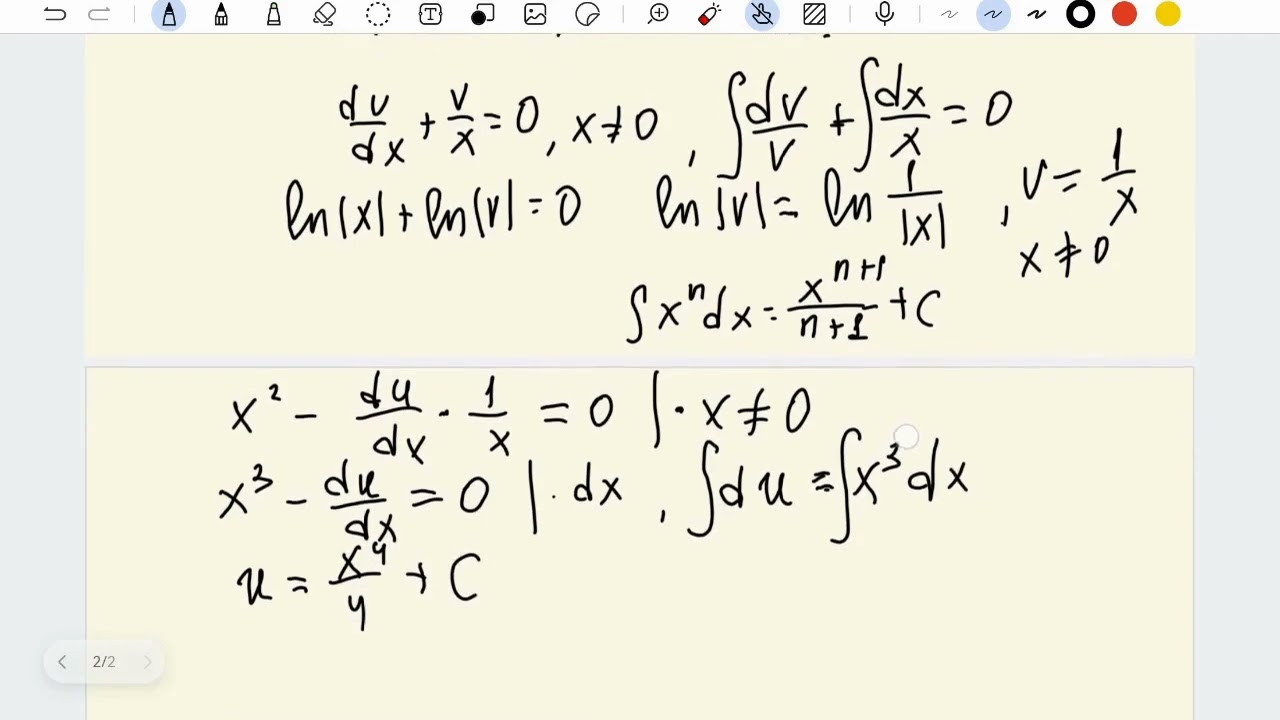 dv/dx + v/x = 0, x ≠ 0, ∫dv/v + ∫dx/x = 0
ln|x| + ln|v| = 0 ln|v| = ln 1/|x|, v = 1/x
x ≠ 0
∫xⁿdx = xⁿ⁺¹/n+1 + C
x² - du/dx · 1/x = 0 | · x ≠ 0
x³ - du/dx = 0 | · dx, ∫du = ∫x³dx
u = x⁴/4 + C
2/2